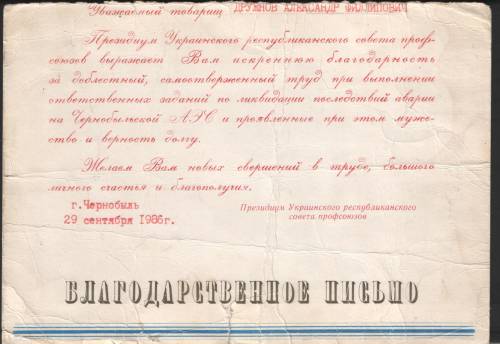 Уважаемый товарищ ДРУЖНОВ АЛЕКСАНДР ФИЛИПОВИЧ
Президиум Украинского республиканского совета проф-
союзов выражает Вам искреннюю благодарность
за доблестный, самоотверженный труд при выполнении
ответственных заданий по ликвидации последствий аварии
на Чернобыльской АЭС и проявленные при этом муже-
ство и верность долгу.
Желаем Вам новых свершений в труде, большого
личного счастья и благополучия.
г.Чернобыль
29 сентября 1986г.
Президиум Украинского республиканского
совета профсоюзов
БЛАГОДАРСТВЕННОЕ ПИСЬМО